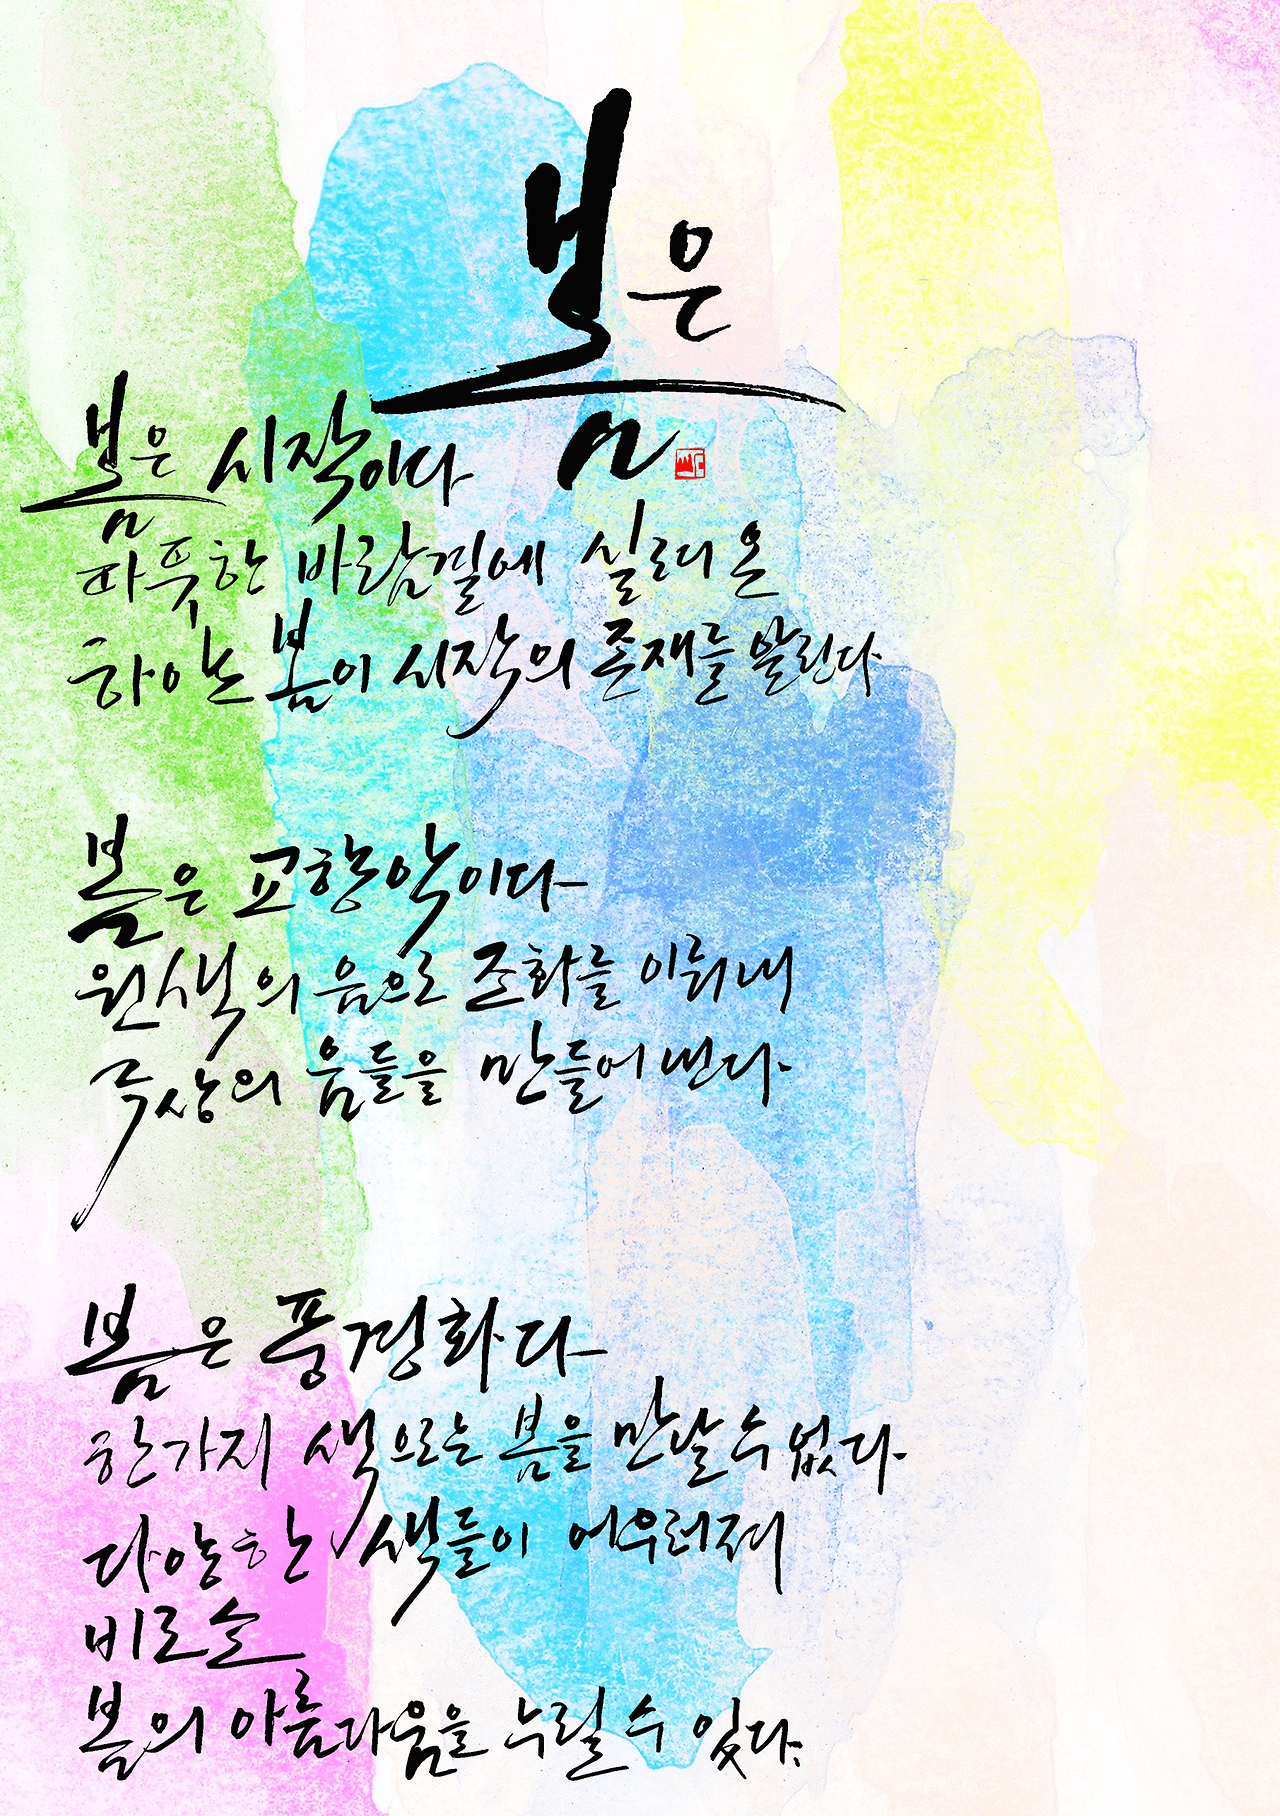 봄은
봄은 시작이다
따뜻한 바람결에 실려온
하얀 봄이 시작의 존재를 알린다
봄은 교향악이다
원색의 음으로 조화를 이뤄내
극상의 음들을 만들어 낸다.
봄은 풍경화다
한가지 색으로는 봄을 만날 수 없다.
다양한 색들이 어우러져
비로소
봄의 아름다움을 누릴 수 있다.